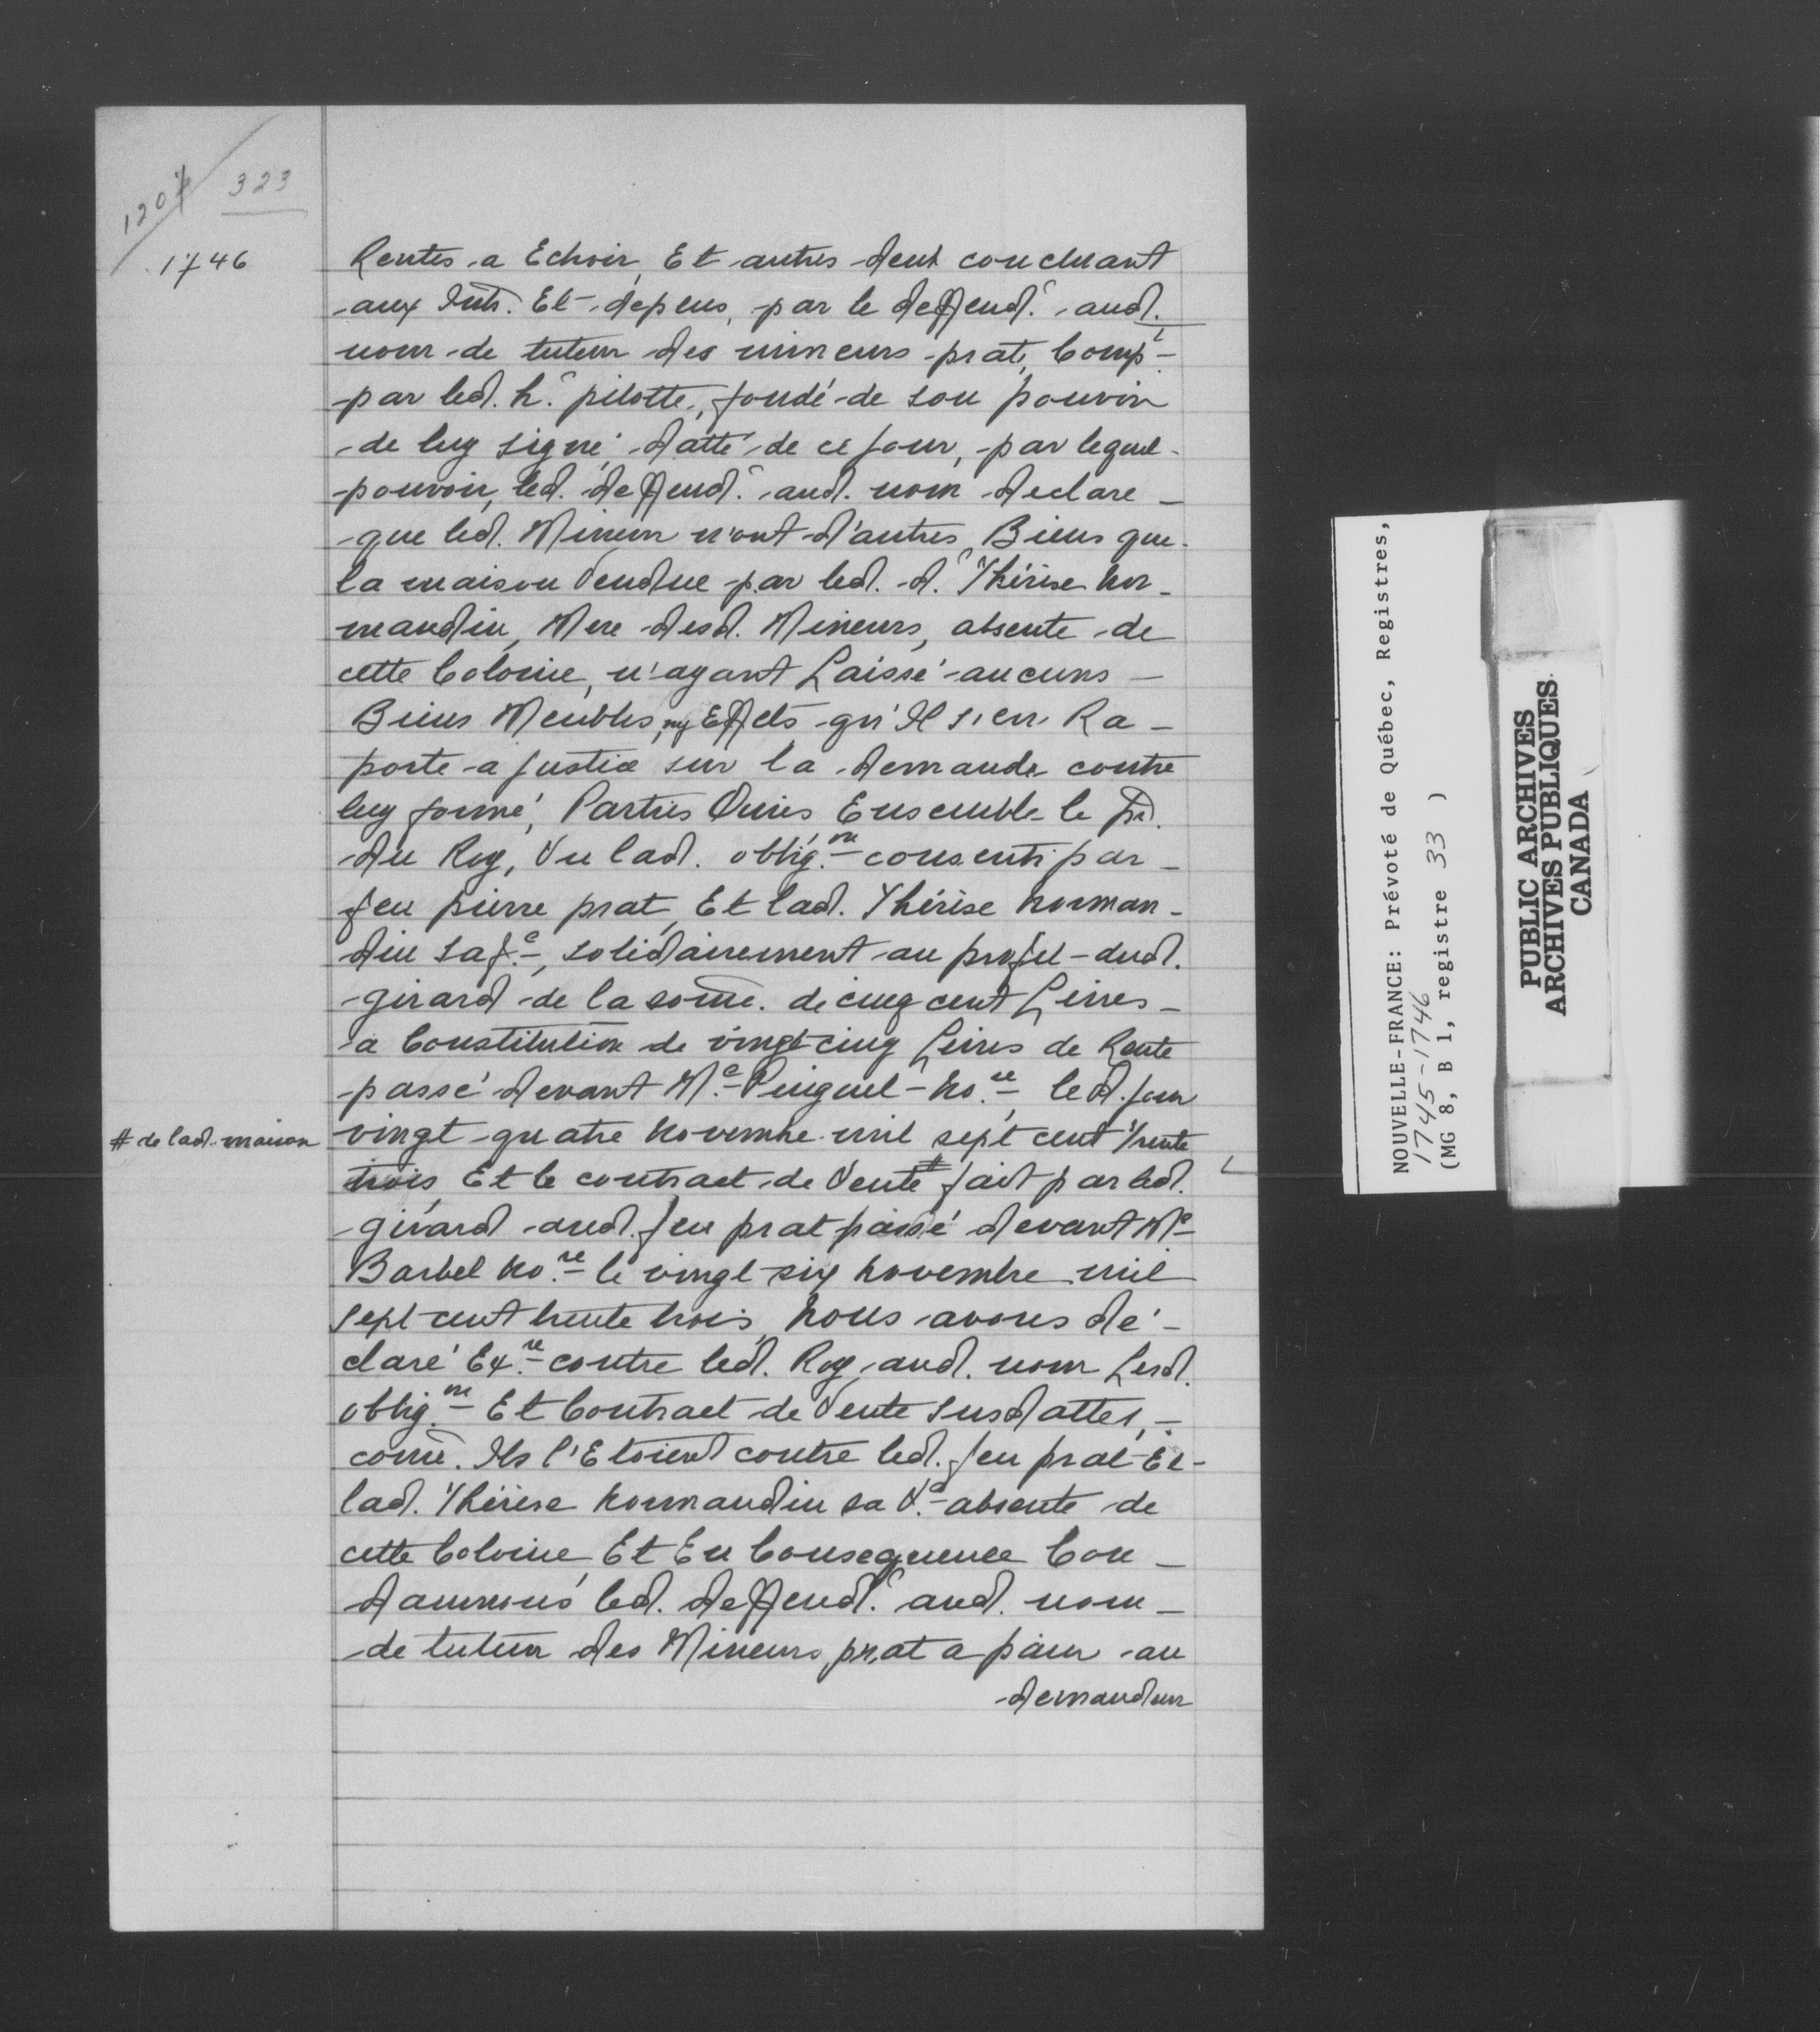 1207
323
1746
Rentes a Echoir, Et autres dont concluant
aux Intts. Et depens, par le deffendr. aud.
nom de tuteur des mineurs prat, Compt
par led. Sr. pilotte, fondé de son pouvoir
de luy signé datté de ce jour, par lequel
pouvoir, led. deffendr. aud. nom declare
que led. Mineur n'ont d'autres Biens que
la maison Vendue par led. d. Thérèse Nor-
mandin, Mere desd. Mineurs, absente de
cette Colonie, n'ayant Laissé aucuns
Biens Meubles, ny Effets qu'Il s'en Ra-
porte a justice sur la demande contre
luy formé, Parties Ouies Ensemble le pr.
du Roy, Vu lad. oblig.on consenti par
feu pierre prat, Et lad. Thérèse Norman-
din sa f.e, solidairement au profit dud.
girard de la some. de cinq cent Livres
a Constitution de vingt cinq Livres de Rente
passé devant Me. Pinguet No.re, led. jour
vingt quatre Novembre mil sept cent Trente
# de lad. maison
trois, Et le contract de Vente # fait par led.
girard aud. feu prat passé devant Me
Barbel No.re le vingt six Novembre mil
sept cent trente trois, Nous avons dé-
claré Ex.re contre led. Roy, aud. nom Lesd.
oblig.on Et Contract de Vente susdattes,
come. Ils l'Etoient contre led. feu prat Et
lad. Thérèse Normandin sa V.e absente de
cette Colonie, Et En Consequence Con-
damnons led. deffendr. aud. nom
de tuteur des Mineurs, prat a paier au
demandeur
NOUVELLE-FRANCE: Prévoté de Québec, Registres,
1745-1746
(MG 8, B 1, registre 33 )
PUBLIC ARCHIVES
ARCHIVES PUBLIQUES
CANADA